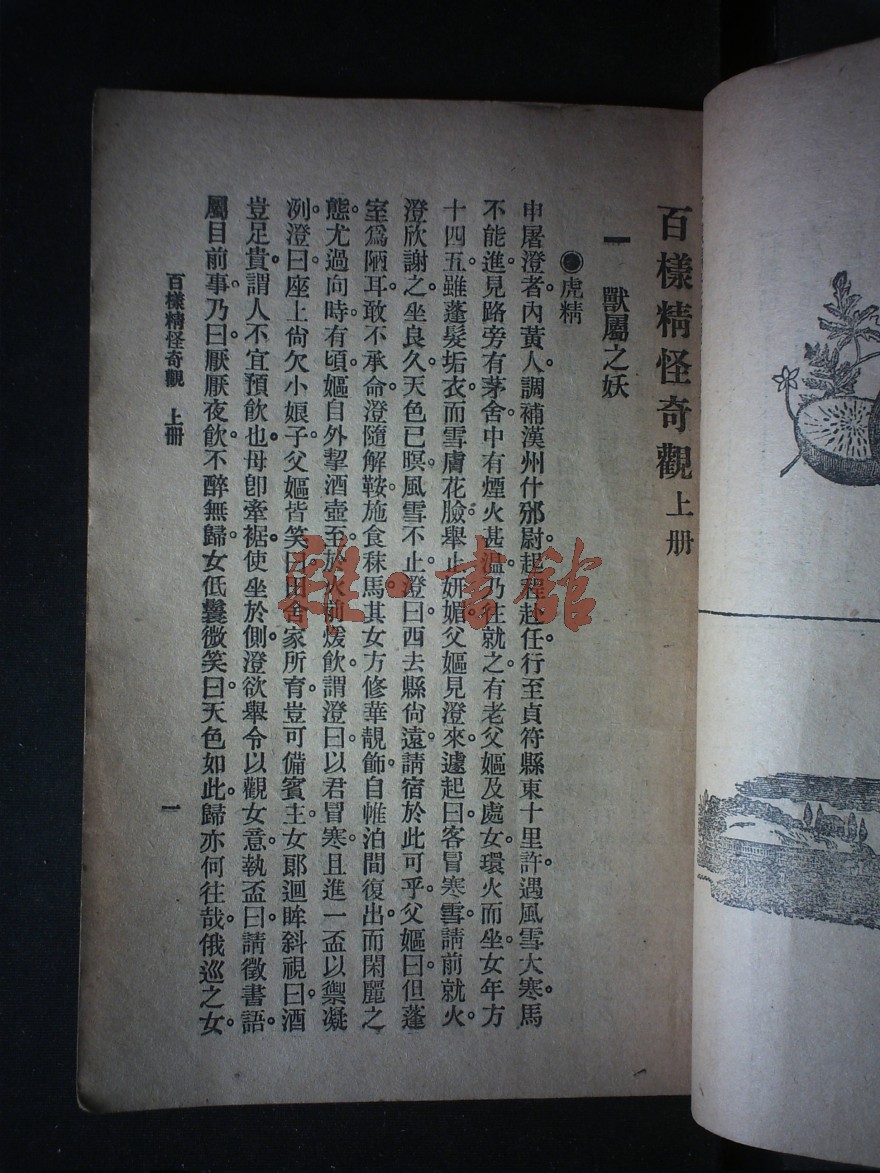 百樣精怪奇觀 上册
一 獸屬之妖
●虎精
申屠澄者內黃人調補漢州什邡尉起程赴任行至貞符縣東十里許遇風雪大寒馬
不能進見路旁有茅舍中有煙火甚溫乃往就之有老父嫗及處女環火而坐女年方
十四五雖蓬髮垢衣而雪膚花臉舉止妍媚父嫗見澄來遽起曰客冒寒雪請前就火
澄欣謝之坐良久天色已暝風雪不止澄曰西去縣尙遠請宿於此可乎父嫗曰但蓬
室爲陋耳敢不承命澄隨解鞍施食秣馬其女方修華靚飾自帷泊間復出而閑麗之
態尤過向時有頃嫗自外挈酒壺至於火前煖飲謂澄曰以君冒寒且進一盃以禦凝
冽澄曰座上尙欠小娘子父嫗皆笑曰田舍家所育豈可備賓主女郎迴眸斜視曰酒
豈足貴謂人不宜預飲也母卽牽裾使坐於側澄欲舉令以觀女意執盃曰請徵書語
屬目前事乃曰厭厭夜飲不醉無歸女低鬟微笑曰天色如此歸亦何往哉俄巡之女
百樣精怪奇觀 上册
一
雜·書館